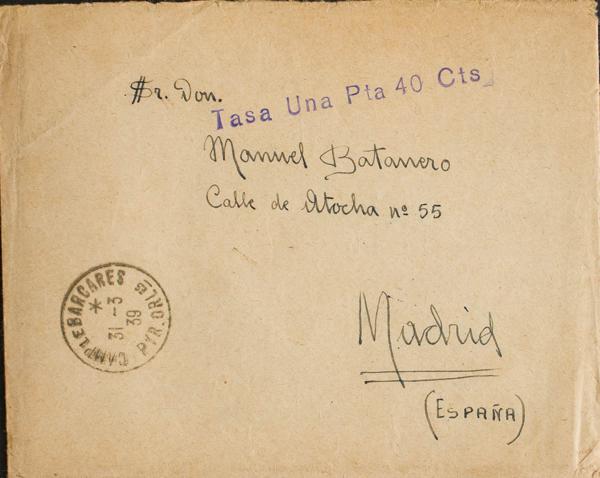 Sr. Don.
Tasa Una Pta 40 Cts
Manuel Batanero
Calle de Atocha nº 55
CAMP LE BARCARES PYR. ORLES
*
31-3
39
Madrid
(ESPAÑA)